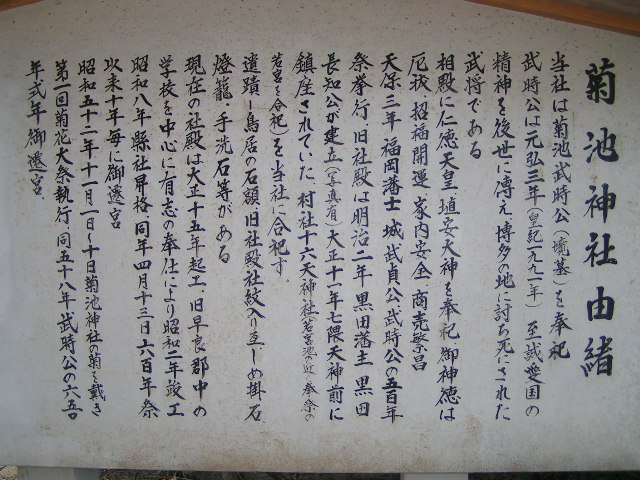 菊池神社由緒
当社は菊池武時公(境墓)を奉祀
武時公は元弘三年(皇紀一九九一年) 至誠愛国の
精神を後世に傳え博多の地に討ち死にされた
武将である
相殿に仁徳天皇 埴安大神を奉祀 御神徳は
厄祓 招福開運 家内安全 商売繁昌
天保三年 福岡藩士 城武貞公武時公の五百年
祭挙行 旧社殿は明治二年 黒田藩主 黒田
長知公が建立(写真有)大正十一年七隈天神前に
鎮座されていた 村社十六天神社(若宮 近 奉祭の
若宮を合祀)を当社に合祀す。
遺蹟―鳥居の石額 旧社殿社紋入り しめ掛石
燈籠 手洗石等がある
現在の社殿は大正十五年起工 旧早良郡中の
学校を中心に有志の奉仕により昭和二年竣工
昭和八年縣社昇格同年四月十三日六百年祭
以来十年毎に御遷宮
昭和五十二年十一月一日〜十日菊池神社の菊を戴き
第一回菊花大祭執行 同五十八年武時公の六五〇
年式年御遷宮